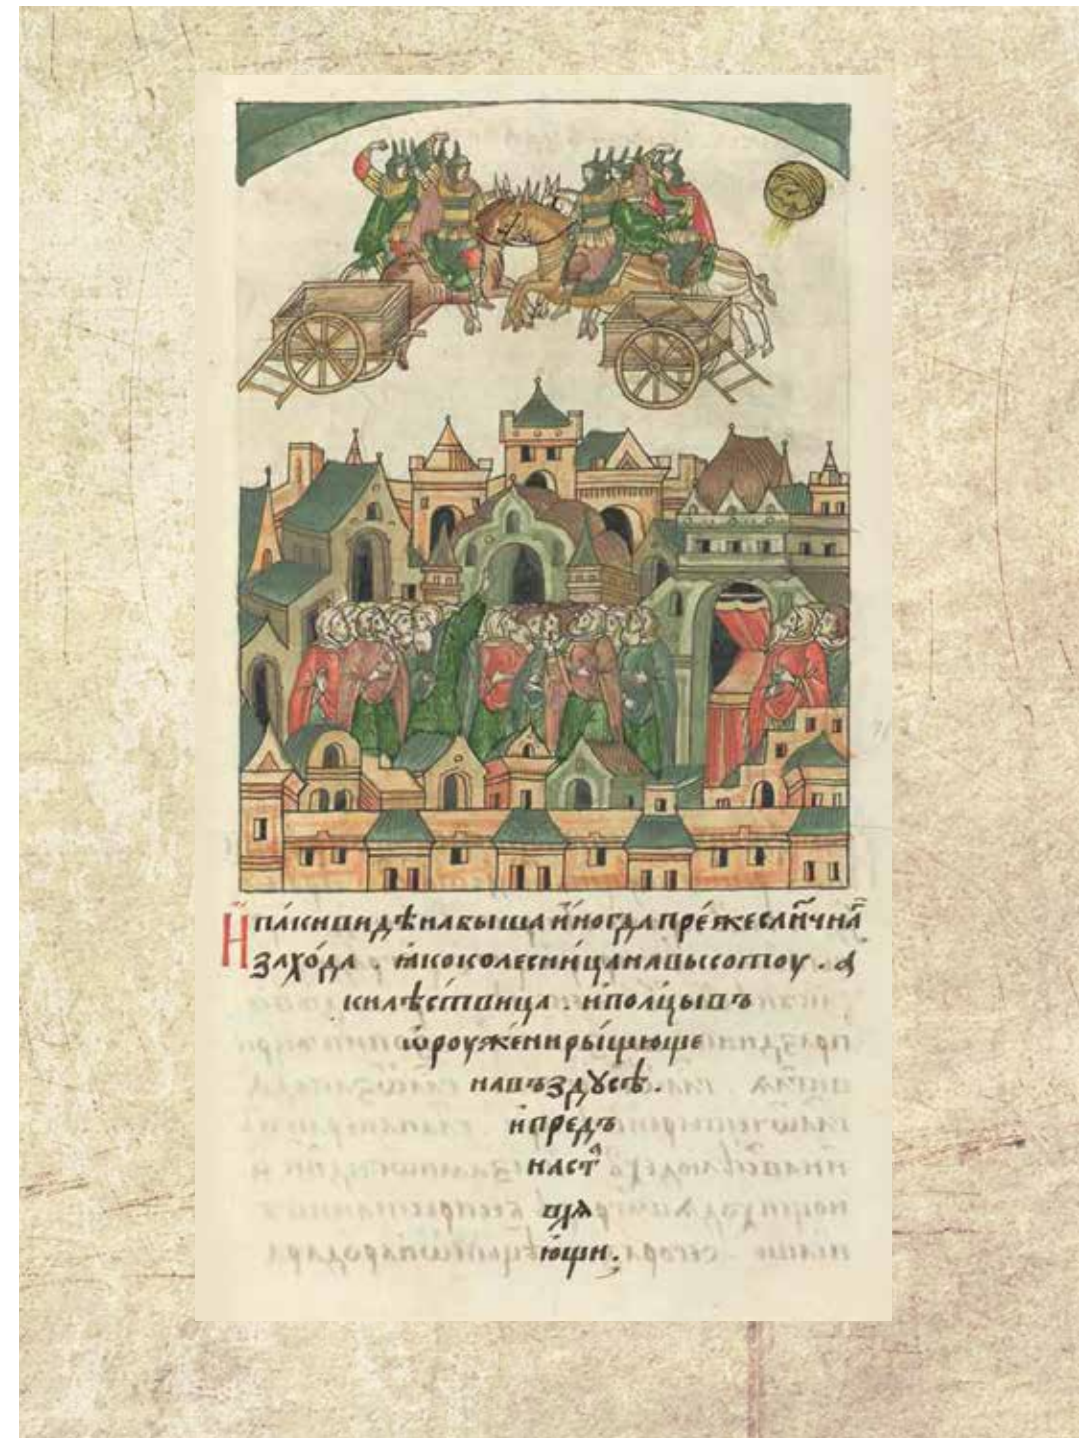 И҆ паки видѣна быша и҆ногда преже слн҃чна
захо́да . ꙗко колесни́ца на высотоу . а҆
ки лѣствица . и полцы въ
ѡ҆роуже́нии ры́щюще
на въздꙋсѣ .
и҆ предъ
наст
ꙋпа
ю҆щи .